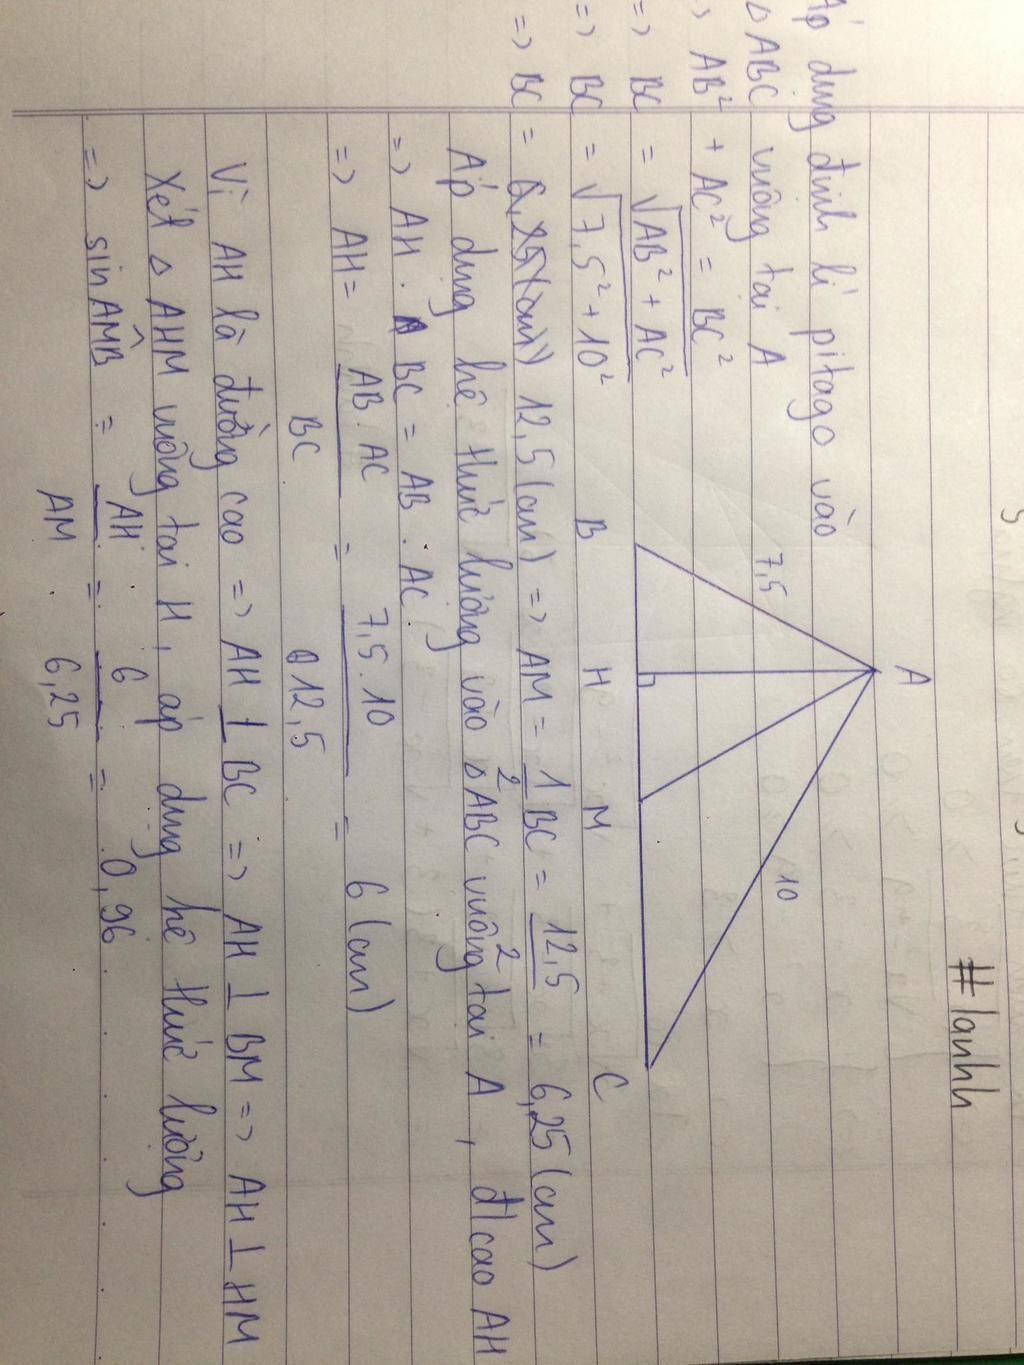 #lanhh
A
7,5
10
B H M C
Áp dụng định lí pitago vào
△ ABC vuông tại A
=> AB² + AC² = BC²
=> BC = √AB² + AC²
=> BC = √7,5² + 10²
=> BC = 12,5 (cm) => AM = 1/2 BC = 12,5/2 = 6,25 (cm)
Áp dụng hệ thức lượng vào △ ABC vuông tại A, đ/cao AH
=> AH . BC = AB . AC
=> AH = AB . AC/BC = 7,5 . 10/12,5 = 6 (cm)
Vì AH là đường cao => AH ⊥ BC => AH ⊥ BM => AH ⊥ HM
Xét △ AHM vuông tại H, áp dụng hệ thức lượng
=> sin AM̂B = AH/AM = 6/6,25 = 0,96